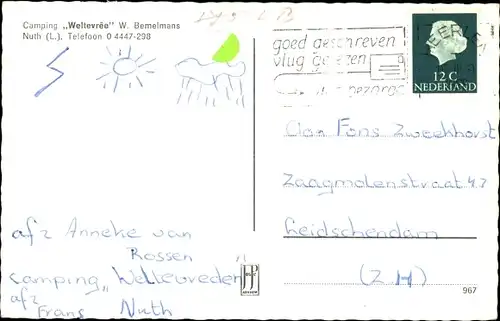 Camping „Weltevrêe” W. Bemelmans
Nuth (L.). Telefoon 0 4447-298
goed geschreven
vlug gelezen
HEERLEN
12 C
NEDERLAND
Aan Fons Zweekhorst
Zaagmolenstraat 47
Leidschendam
(Z H)
afz Anneke van
Rossen
camping „Weltevreden”
afz
Frans Nuth
967